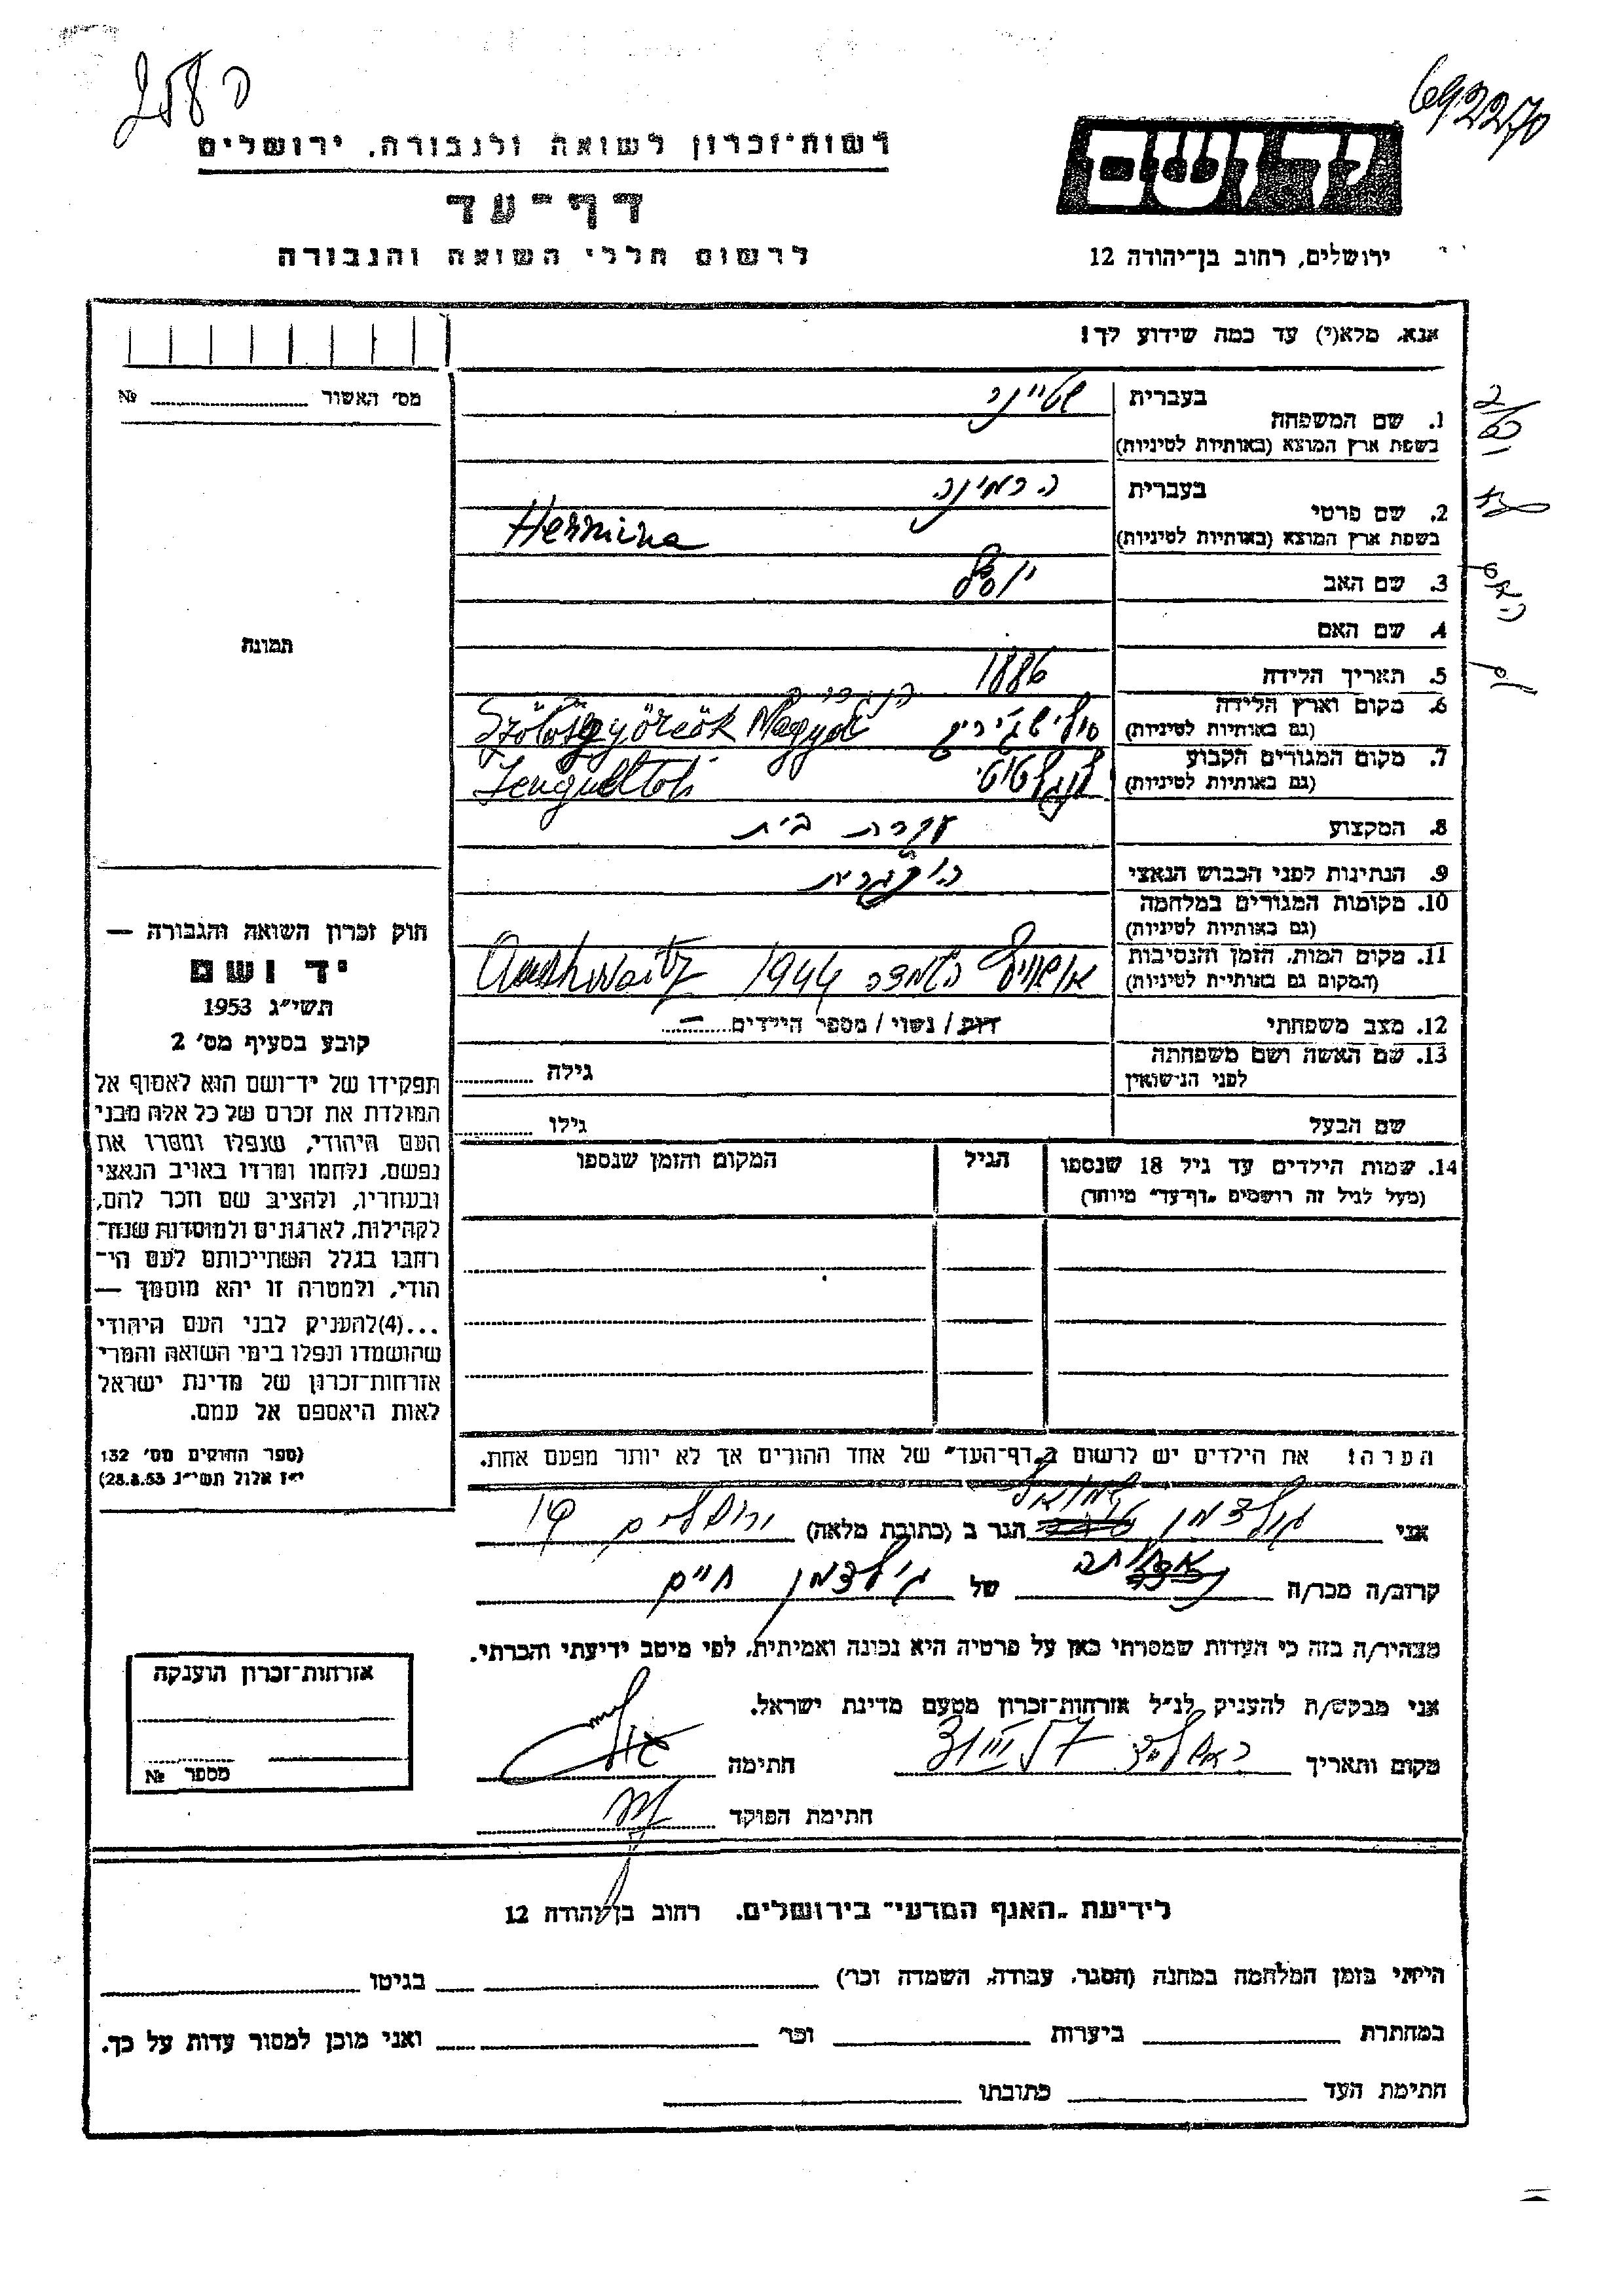 692270
רשות־זכרון לשואה ולגבורה, ירושלים
דף־עד
לרשום חללי השואה והגבורה
יד ושם
ירושלים, רחוב בן־יהודה 12
אנא, מלא(י) עד כמה שידוע לך!
מס' האשור № 
תמונה
1. שם המשפחה בעברית שטיינר
בשפת ארץ המוצא (באותיות לטיניות)
2. שם פרטי בעברית הרמינה
בשפת ארץ המוצא (באותיות לטיניות) Hermina
3. שם האב יוסף
4. שם האם
5. תאריך הלידה 1886
6. מקום וארץ הלידה
(גם באותיות לטיניות) Szölösgyöröök
7. מקום המגורים הקבוע
(גם באותיות לטיניות) Lengyeltoti
8. המקצוע עקרת בית
9. הנתינות לפני הכבוש הנאצי
10. מקומות המגורים במלחמה
(גם באותיות לטיניות)
11. מקום המות, הזמן והנסיבות
(המקום גם באותיות לטיניות) אושוויץ השמדה 1944
12. מצב משפחתי רווק / נשוי / מספר הילדים
13. שם האשה ושם משפחתה
לפני הנישואין גילה
שם הבעל גילו
14. שמות הילדים עד גיל 18 שנספו הגיל המקום והזמן שנספו
(מעל לגיל זה רושמים „דף־עד" מיוחד)
חוק זכרון השואה והגבורה —
יד ושם
תשי״ג 1953
קובע בסעיף מס' 2
תפקידו של יד־ושם הוא לאסוף אל
המולדת את זכרם של כל אלה מבני
העם היהודי, שנפלו ומסרו את
נפשם, נלחמו ומרדו באויב הנאצי
ובעוזריו, ולהציב שם וזכר להם,
לקהילות, לארגונים ולמוסדות שנח־
רבו בגלל השתייכותם לעם הי־
הודי, ולמטרה זו יהא מוסמך —
...(4)להעניק לבני העם היהודי
שהושמדו ונפלו בימי השואה והמרי
אזרחות־זכרון של מדינת ישראל
לאות היאספם אל עמם.
(ספר החוקים מס' 132
י״ז אלול תשי״ג 28.8.53)
הערה: את הילדים יש לרשום ב„דף־העד" של אחד ההורים אך לא יותר מפעם אחת.
אני גולדמן שמואל הגר ב (כתובת מלאה) ירושלים
קרוב/ה מכר/ה של גולדמן חיים
מצהיר/ה בזה כי העדות שמסרתי כאן על פרטיה היא נכונה ואמיתית, לפי מיטב ידיעתי והכרתי.
אני מבקש/ת להעניק לנ״ל אזרחות־זכרון מטעם מדינת ישראל.
מקום ותאריך חתימה
חתימת הפוקד
אזרחות־זכרון הוענקה
מספר №
לידיעת „האגף המדעי" בירושלים, רחוב בן־יהודה 12
הייתי בזמן המלחמה במחנה (הסגר, עבודה, השמדה וכו') בגיטו
במחתרת ביערות וכו' ואני מוכן למסור עדות על כך.
חתימת העד כתובתו